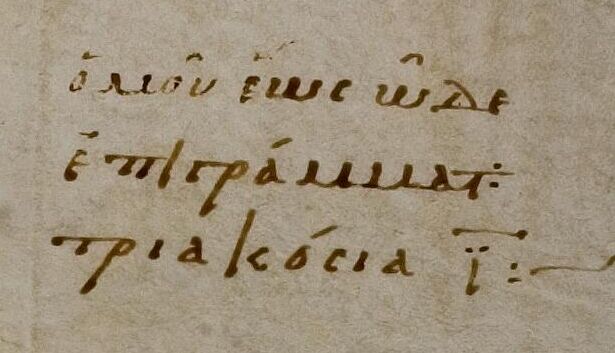 ὁμοῦ ἕως ὧδε
ἐπιγράμματ:
τριακόσια τ̅: